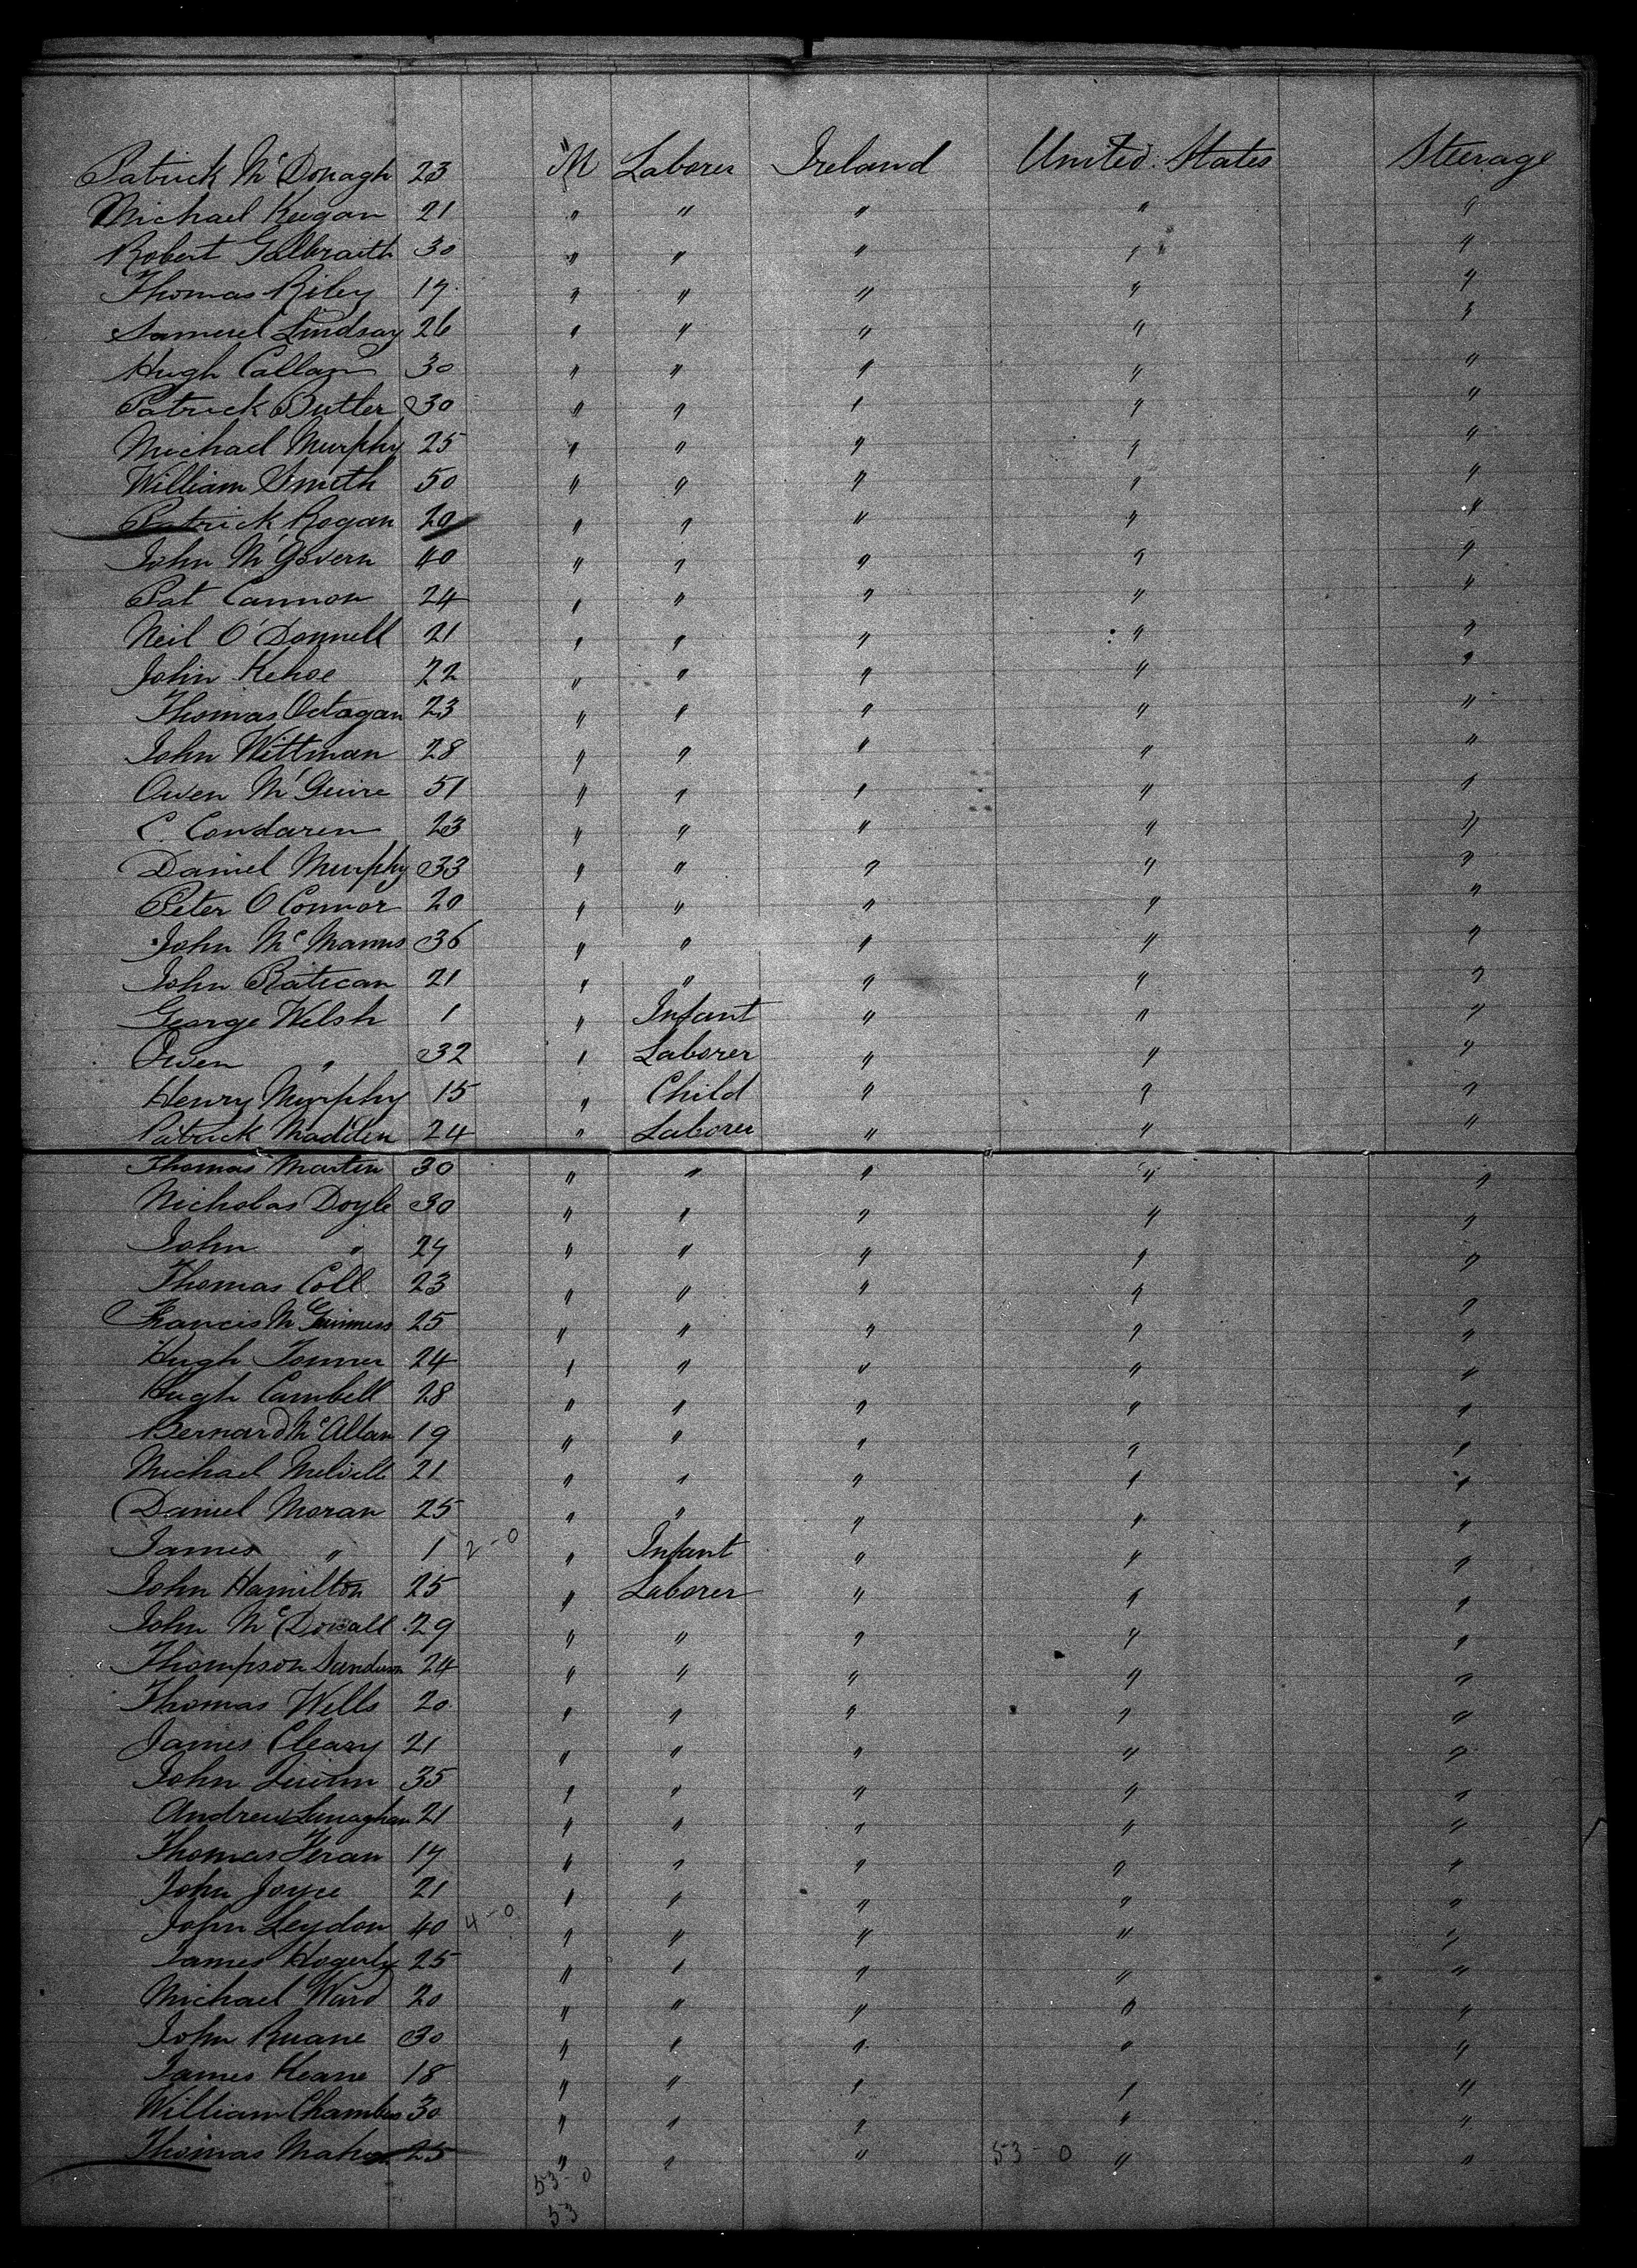 Patrick McDonagh 23 M Laborer Ireland United States Steerage
Michael Keegan 21 " " " " "
Robert Galbraith 30 " " " " "
Thomas Riley 17 " " " " "
Samuel Lindsay 26 " " " " "
Hugh Callan 30 " " " " "
Patrick Butler 30 " " " " "
Michael Murphy 25 " " " " "
William Smith 50 " " " " "
Patrick Rogan 20 " " " " "
John McGovern 40 " " " " "
Pat Cannon 24 " " " " "
Neil O'Donnell 21 " " " " "
John Kehoe 22 " " " " "
Thomas Octagan 23 " " " " "
John Wittman 28 " " " " "
Owen McGuire 51 " " " " "
C. Condaren 23 " " " " "
Daniel Murphy 33 " " " " "
Peter O Connor 20 " " " " "
John McManus 36 " " " " "
John Ratican 21 " " " " "
George Welsh 1 " Infant " " "
Owen " 32 " Laborer " " "
Henry Murphy 15 " Child " " "
Patrick Madden 24 " Laborer " " "
Thomas Martin 30 " " " " "
Nicholas Doyle 30 " " " " "
John " 27 " " " " "
Thomas Coll 23 " " " " "
Francis McGuinness 25 " " " " "
Hugh Tonner 24 " " " " "
Hugh Cambell 28 " " " " "
Bernard McAllan 19 " " " " "
Michael Melvill 21 " " " " "
Daniel Moran 25 " " " " "
James " 1 2-0 " Infant " " "
John Hamilton 25 " Laborer " " "
John McDowall 29 " " " " "
Thompson Sanderson 24 " " " " "
Thomas Wells 20 " " " " "
James Cleary 21 " " " " "
John Quinn 35 " " " " "
Andrew Lunaghan 21 " " " " "
Thomas Feran 17 " " " " "
John Joyce 21 " " " " "
John Leydon 40 4-0 " " " " "
James Hogerty 25 " " " " "
Michael Ward 20 " " " " "
John Ruane 30 " " " " "
James Keane 18 " " " " "
William Chambers 30 " " " " "
Thomas Mahon 25 " " " 53-0 " "
53-0
53